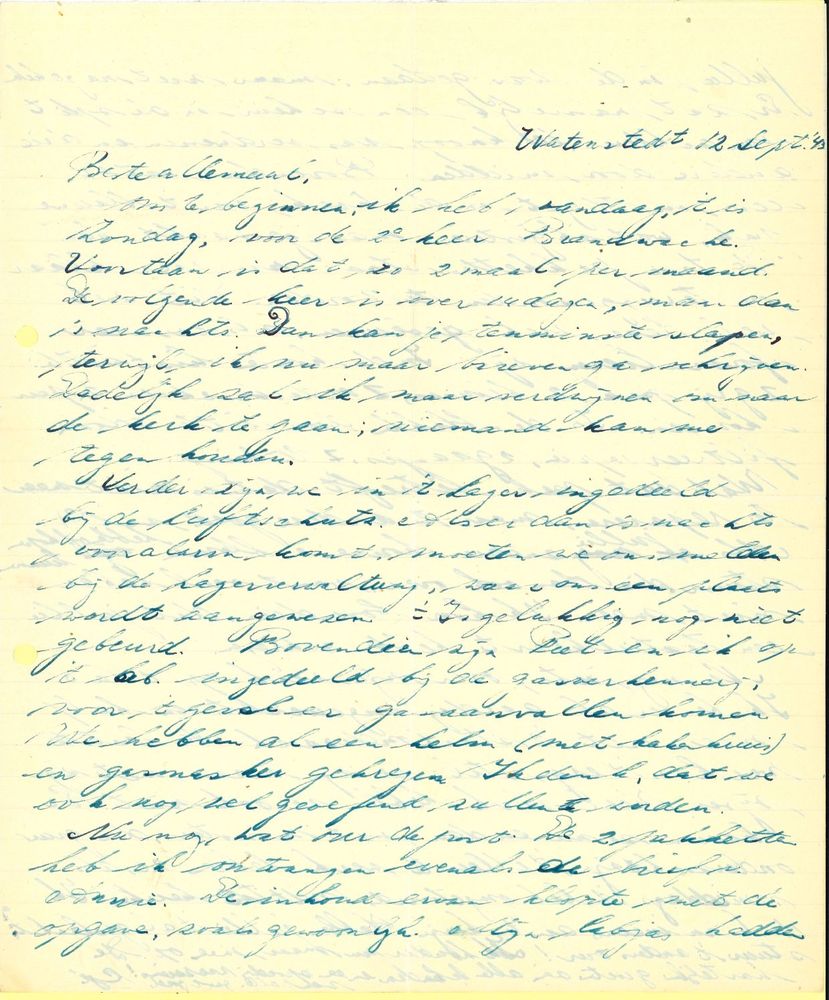 Watenstedt 12 Sept. '43
Beste allemaal,
Om te beginnen, ik heb vandaag, 't is
Zondag, voor de 2e keer Brandwache.
Voortaan is dat zo 2 maal per maand.
De volgende keer is over 14 dagen, maar dan
is nachts. Dan kan je tenminste slapen,
terwijl ik nu maar brieven ga schrijven.
Dadelijk zal ik maar verdwijnen om naar
de kerk te gaan; niemand kan me
tegen houden.
Verder zijn we in 't Lager ingedeeld
bij de Luftschutz. Als er dan is nachts
vooralarm komt, moeten we ons melden
bij de Lagerverwaltung, waar ons een plaats
wordt aangewezen. Is gelukkig nog niet
gebeurd. Bovendien zijn Piet en ik op
't lab. ingedeeld bij de gasverkennerij,
voor 't geval er gasaanvallen komen
We hebben al een helm (met hakenkruis)
en gasmasker gekregen. Ik denk, dat we
ook nog wel geoefend zullen worden.
Nu nog wat over de post. De 2 pakketten
heb ik ontvangen evenals de brief v.
Annie. De inhoud ervan klopte met de
opgave, zoals gewoonlijk. Mijn labjas hadden